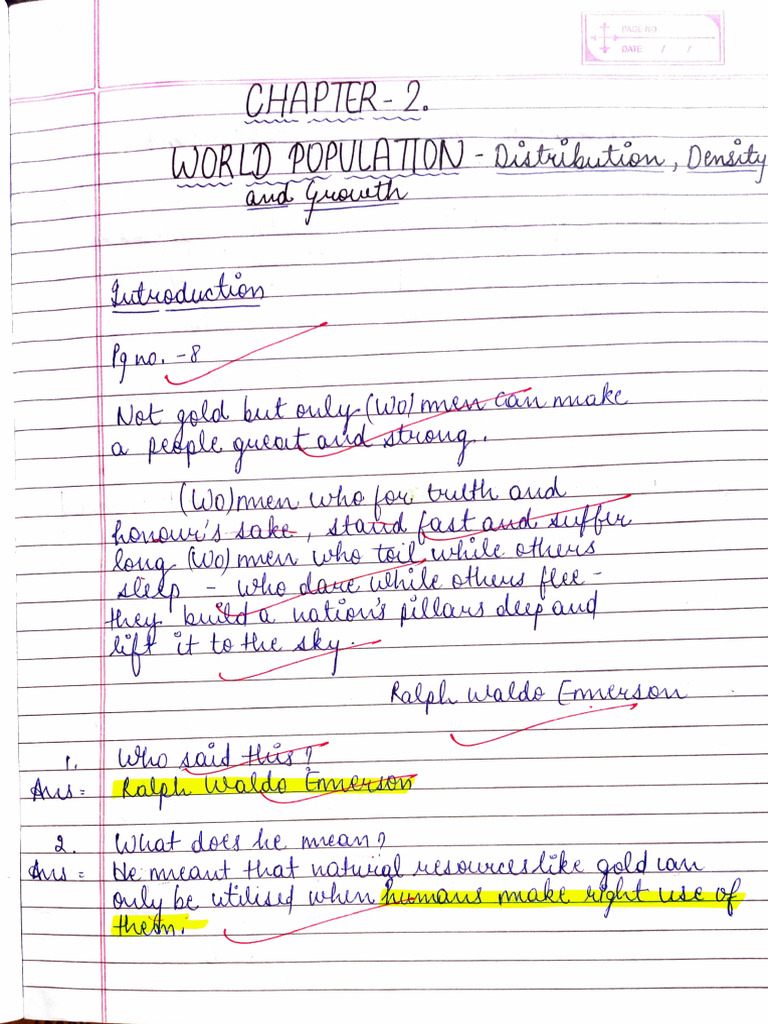 PAGE NO
DATE / /
CHAPTER - 2.
WORLD POPULATION - Distribution, Density
and Growth
Introduction
Pg no. - 8
Not gold but only (Wo)men can make
a people great and strong.
(Wo)men who for truth and
honour's sake, stand fast and suffer
long (Wo)men who toil while others
sleep - who dare while others flee -
they build a nation's pillars deep and
lift it to the sky.
Ralph Waldo Emmerson
1. Who said this?
Ans = Ralph Waldo Emmerson
2. What does he mean?
Ans = He meant that natural resources like gold can
only be utilised when humans make right use of
them.